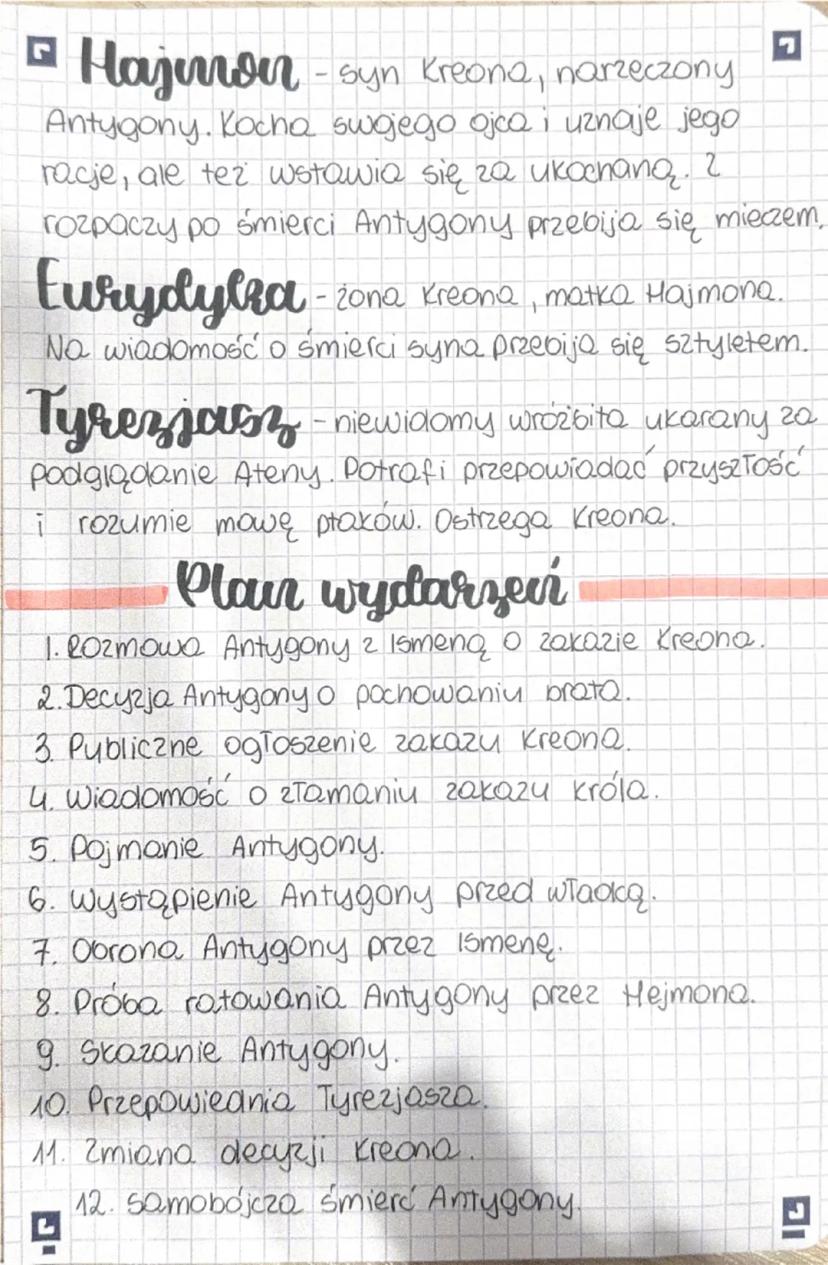 Hajmon - syn Kreona, narzeczony
Antygony. Kocha swojego ojca i uznaje jego
racje, ale też wstawia się za ukochaną. Z
rozpaczy po śmierci Antygony przebija się mieczem.
Eurydyka - żona Kreona, matka Hajmona.
Na wiadomość o śmierci syna przebija się sztyletem.
Tyrezjasz - niewidomy wróżbita ukarany za
podglądanie Ateny. Potrafi przepowiadać przyszłość
i rozumie mowę ptaków. Ostrzega Kreona.
Plan wydarzeń
1. Rozmowa Antygony z Ismeną o zakazie Kreona.
2. Decyzja Antygony o pochowaniu brata.
3. Publiczne ogłoszenie zakazu Kreona.
4. Wiadomość o złamaniu zakazu króla.
5. Pojmanie Antygony.
6. Wystąpienie Antygony przed władcą.
7. Obrona Antygony przez Ismenę.
8. Próba ratowania Antygony przez Hejmona.
9. Skazanie Antygony.
10. Przepowiednia Tyrezjasza.
11. Zmiana decyzji Kreona.
12. Samobójcza śmierć Antygony.